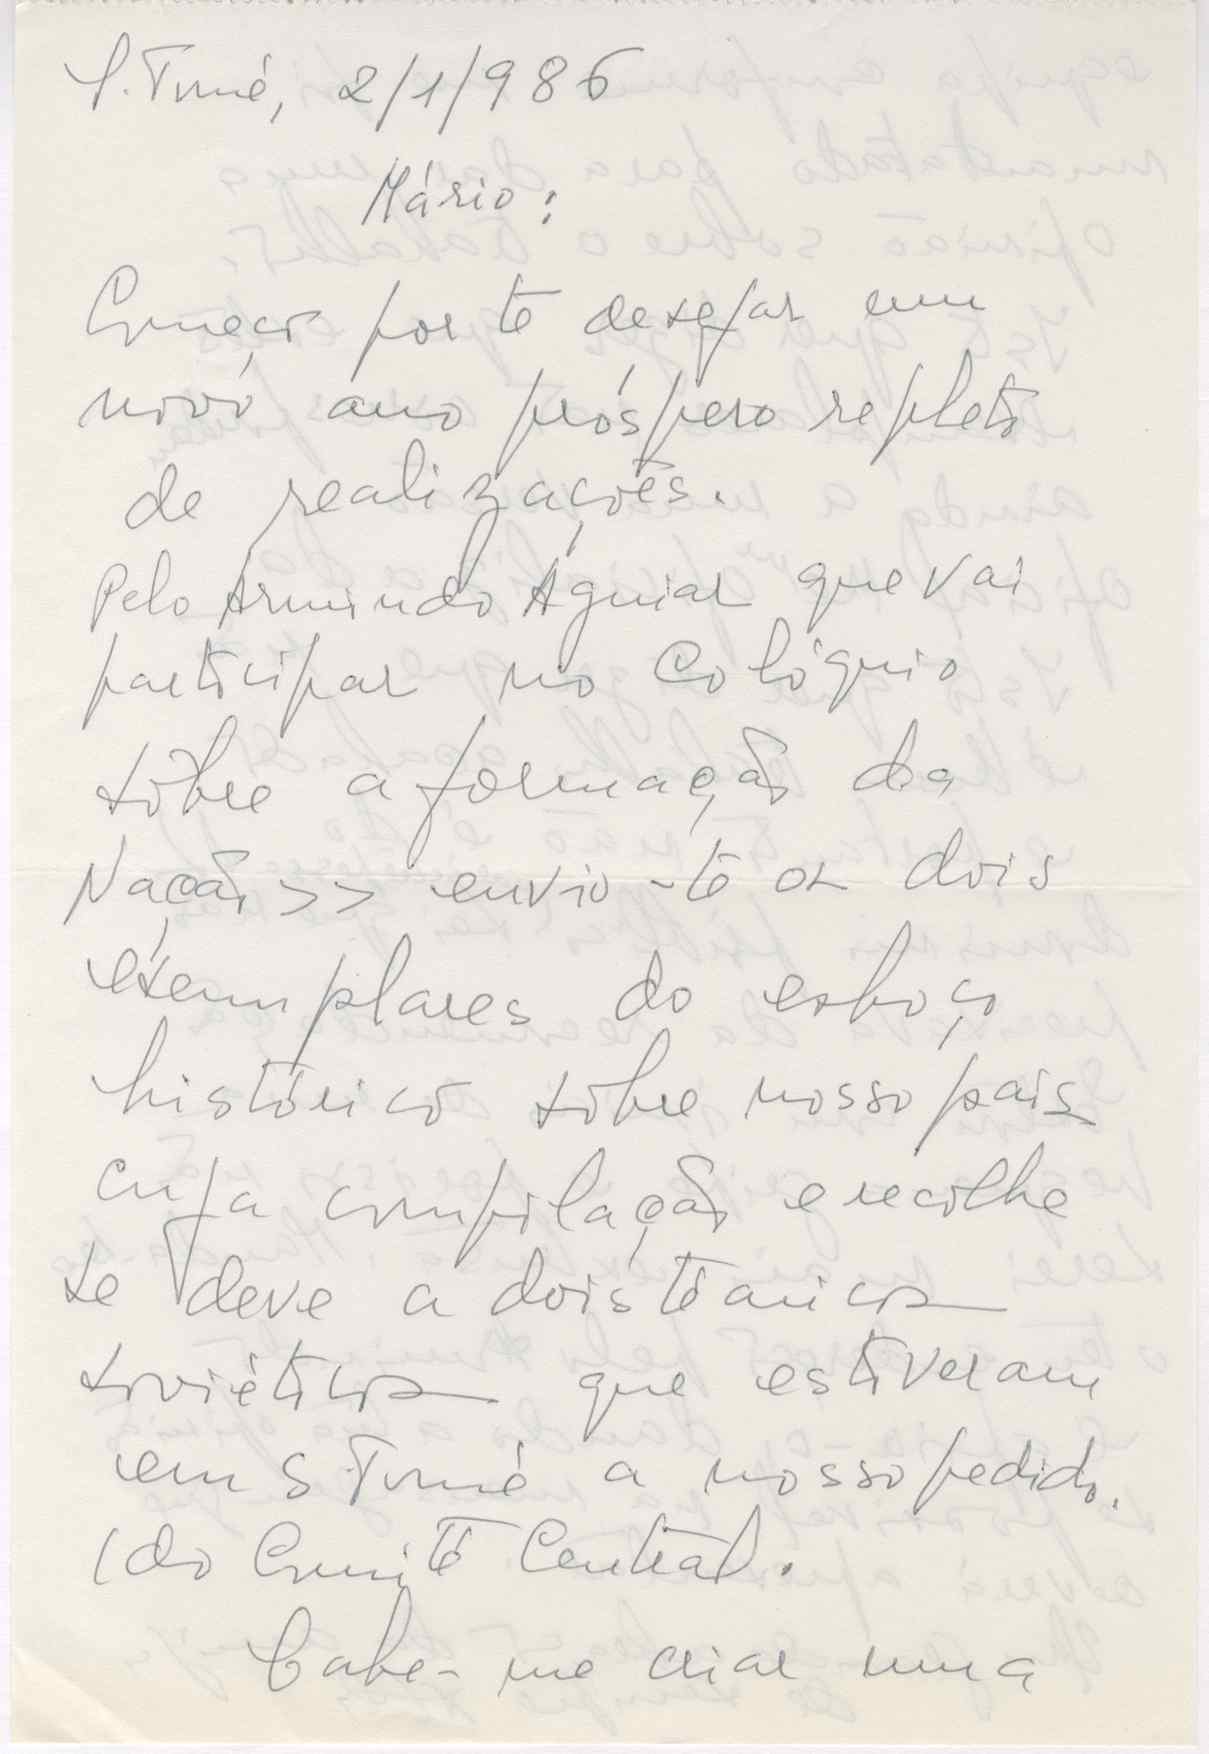 S. Tomé, 2/1/986
Mário:
Começo por te desejar um
novo ano próspero repleto
de realizações.
Pelo Armindo Aguiar que vai
participar no Colóquio
sobre a formação da
Nação >> envio-te os dois
exemplares do esboço
histórico sobre nosso país
cuja compilação e recolhe
se deve a dois técnicos
soviéticos que estiveram
em S. Tomé a nosso pedido.
(do Comité Central.
Cabe-me criar uma